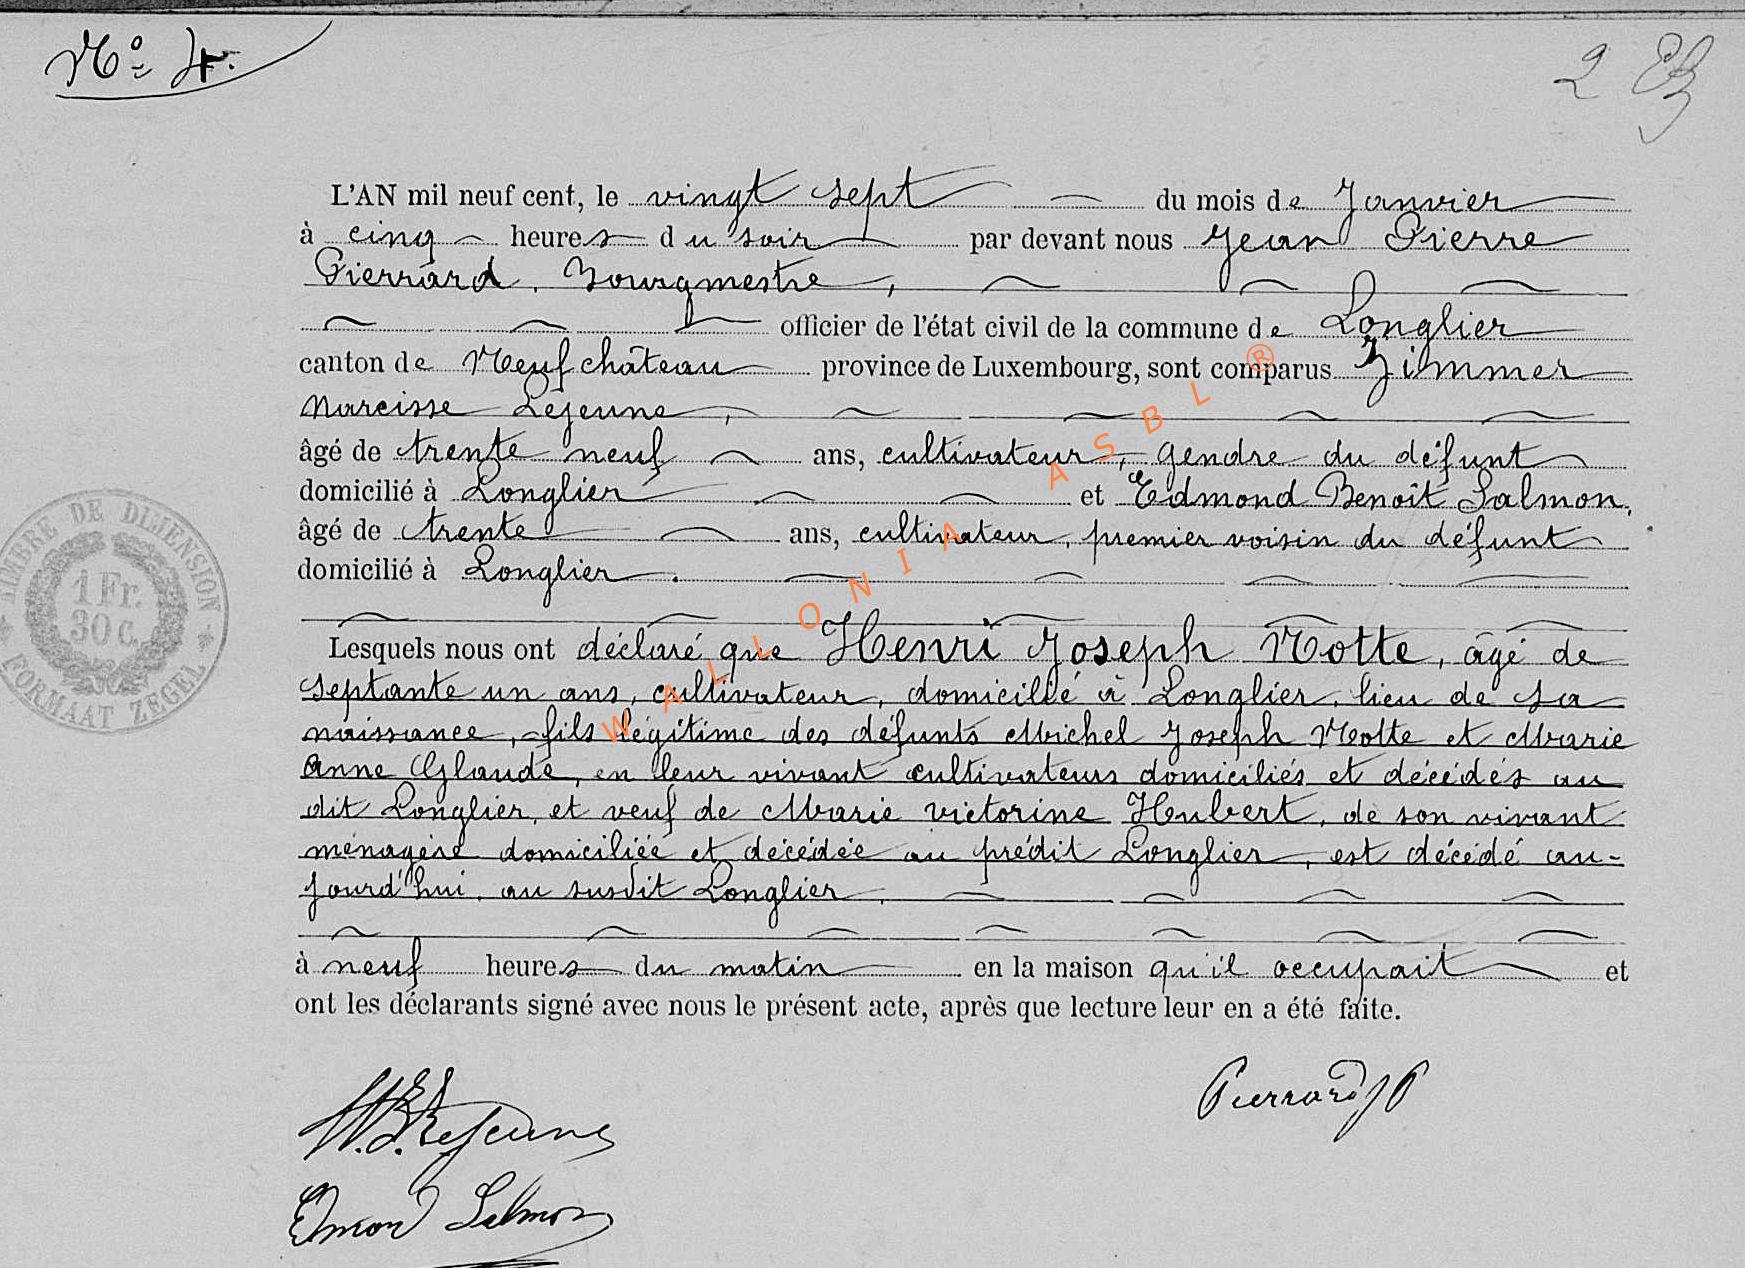 No 4.
2
L'AN mil neuf cent, le vingt sept du mois de Janvier
à cinq heures du soir par devant nous Jean Pierre
Pierrard, Bourgmestre,
officier de l'état civil de la commune de Longlier
canton de Neufchâteau province de Luxembourg, sont comparus Zimmer
Narcisse Lejeune,
âgé de trente neuf ans, cultivateur, gendre du défunt
domicilié à Longlier et Edmond Benoît Salmon,
âgé de trente ans, cultivateur, premier voisin du défunt
domicilié à Longlier.
Lesquels nous ont déclaré que Henri Joseph Motte, âgé de
septante un ans, cultivateur, domicilié à Longlier, lieu de sa
naissance, fils légitime des défunts Michel Joseph Motte et Marie
Anne Glaude, en leur vivant cultivateurs domiciliés et décédés au
dit Longlier, et veuf de Marie Victorine Hubert, de son vivant
ménagère domiciliée et décédée au prédit Longlier, est décédé au-
jourd'hui, au susdit Longlier,
à neuf heures du matin en la maison qu'il occupait et
ont les déclarants signé avec nous le présent acte, après que lecture leur en a été faite.
Pierrard JP
Lejeune
Salmon
TIMBRE DE DIMENSION
1 Fr.
30 c.
FORMAAT ZEGEL
WALLONIA ASBL ®